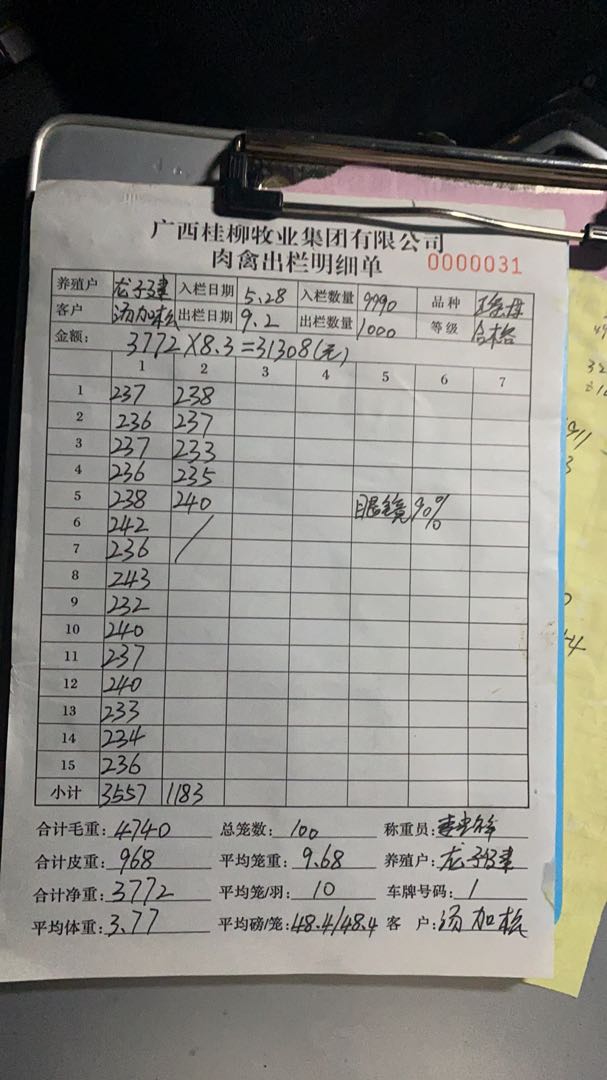 广西桂柳牧业集团有限公司
肉禽出栏明细单 0000031
养殖户 入栏日期 5.28 入栏数量 9990 品种
客户 汤加松 出栏日期 9.2 出栏数量 1000 等级 合格
金额: 3772×8.3=31308(元)
1 2 3 4 5 6 7
1 237 238
2 236 237
3 237 233
4 236 235
5 238 240 眼镜90%
6 242 /
7 236 /
8 243
9 232
10 240
11 237
12 240
13 233
14 234
15 236
小计 3557 1183
合计毛重: 4740 总笼数: 100 称重员:
合计皮重: 968 平均笼重: 9.68 养殖户:
合计净重: 3772 平均笼/羽: 10 车牌号码: 1
平均体重: 3.77 平均磅/笼: 48.4/48.4 客 户: 汤加松